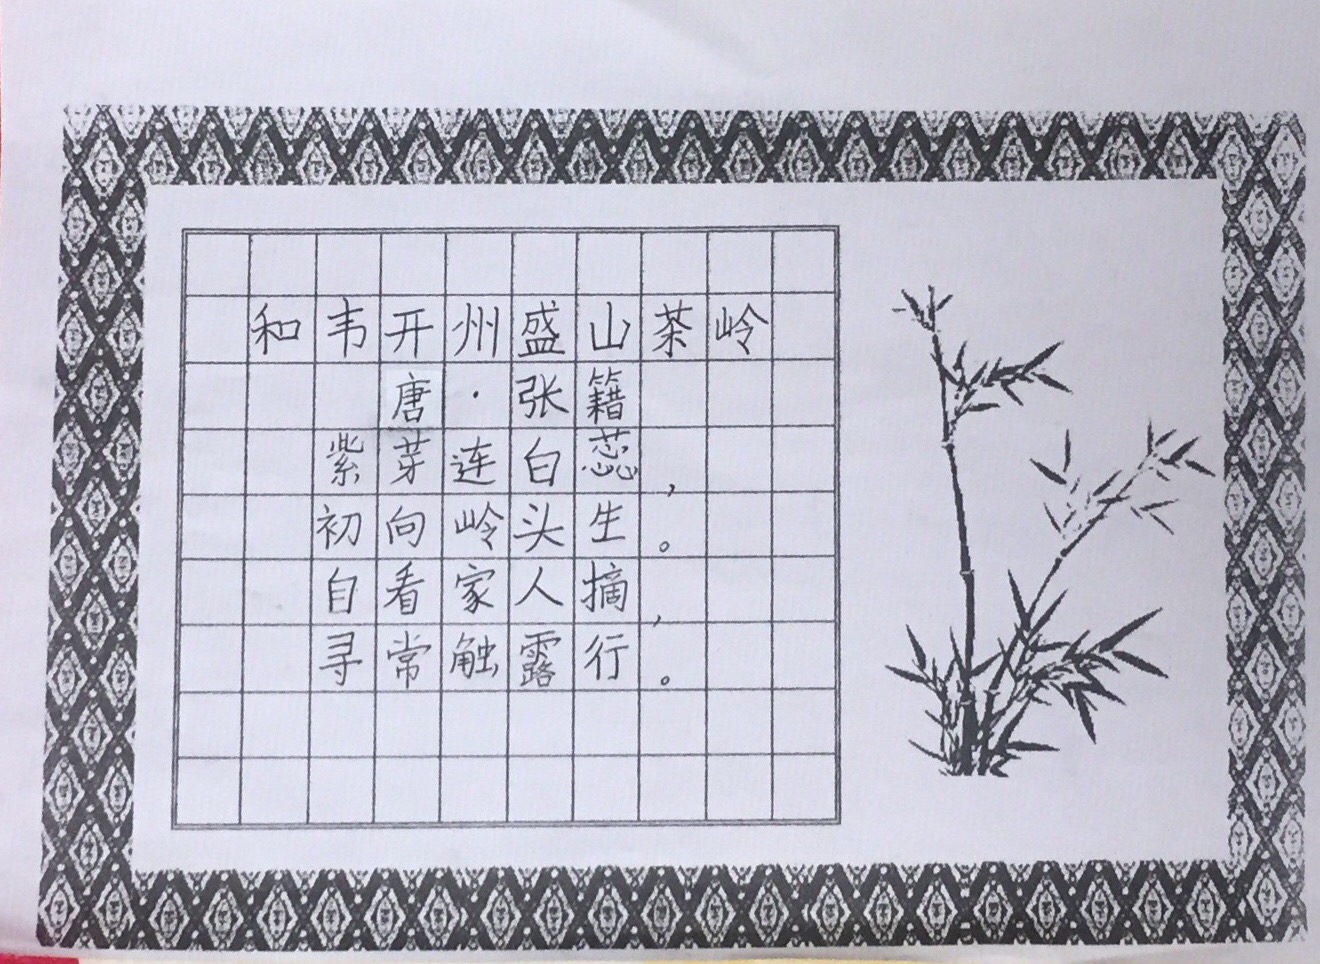 和韦开州盛山茶岭
唐·张籍
紫芽连白蕊，
初向岭头生。
自看家人摘，
寻常触露行。